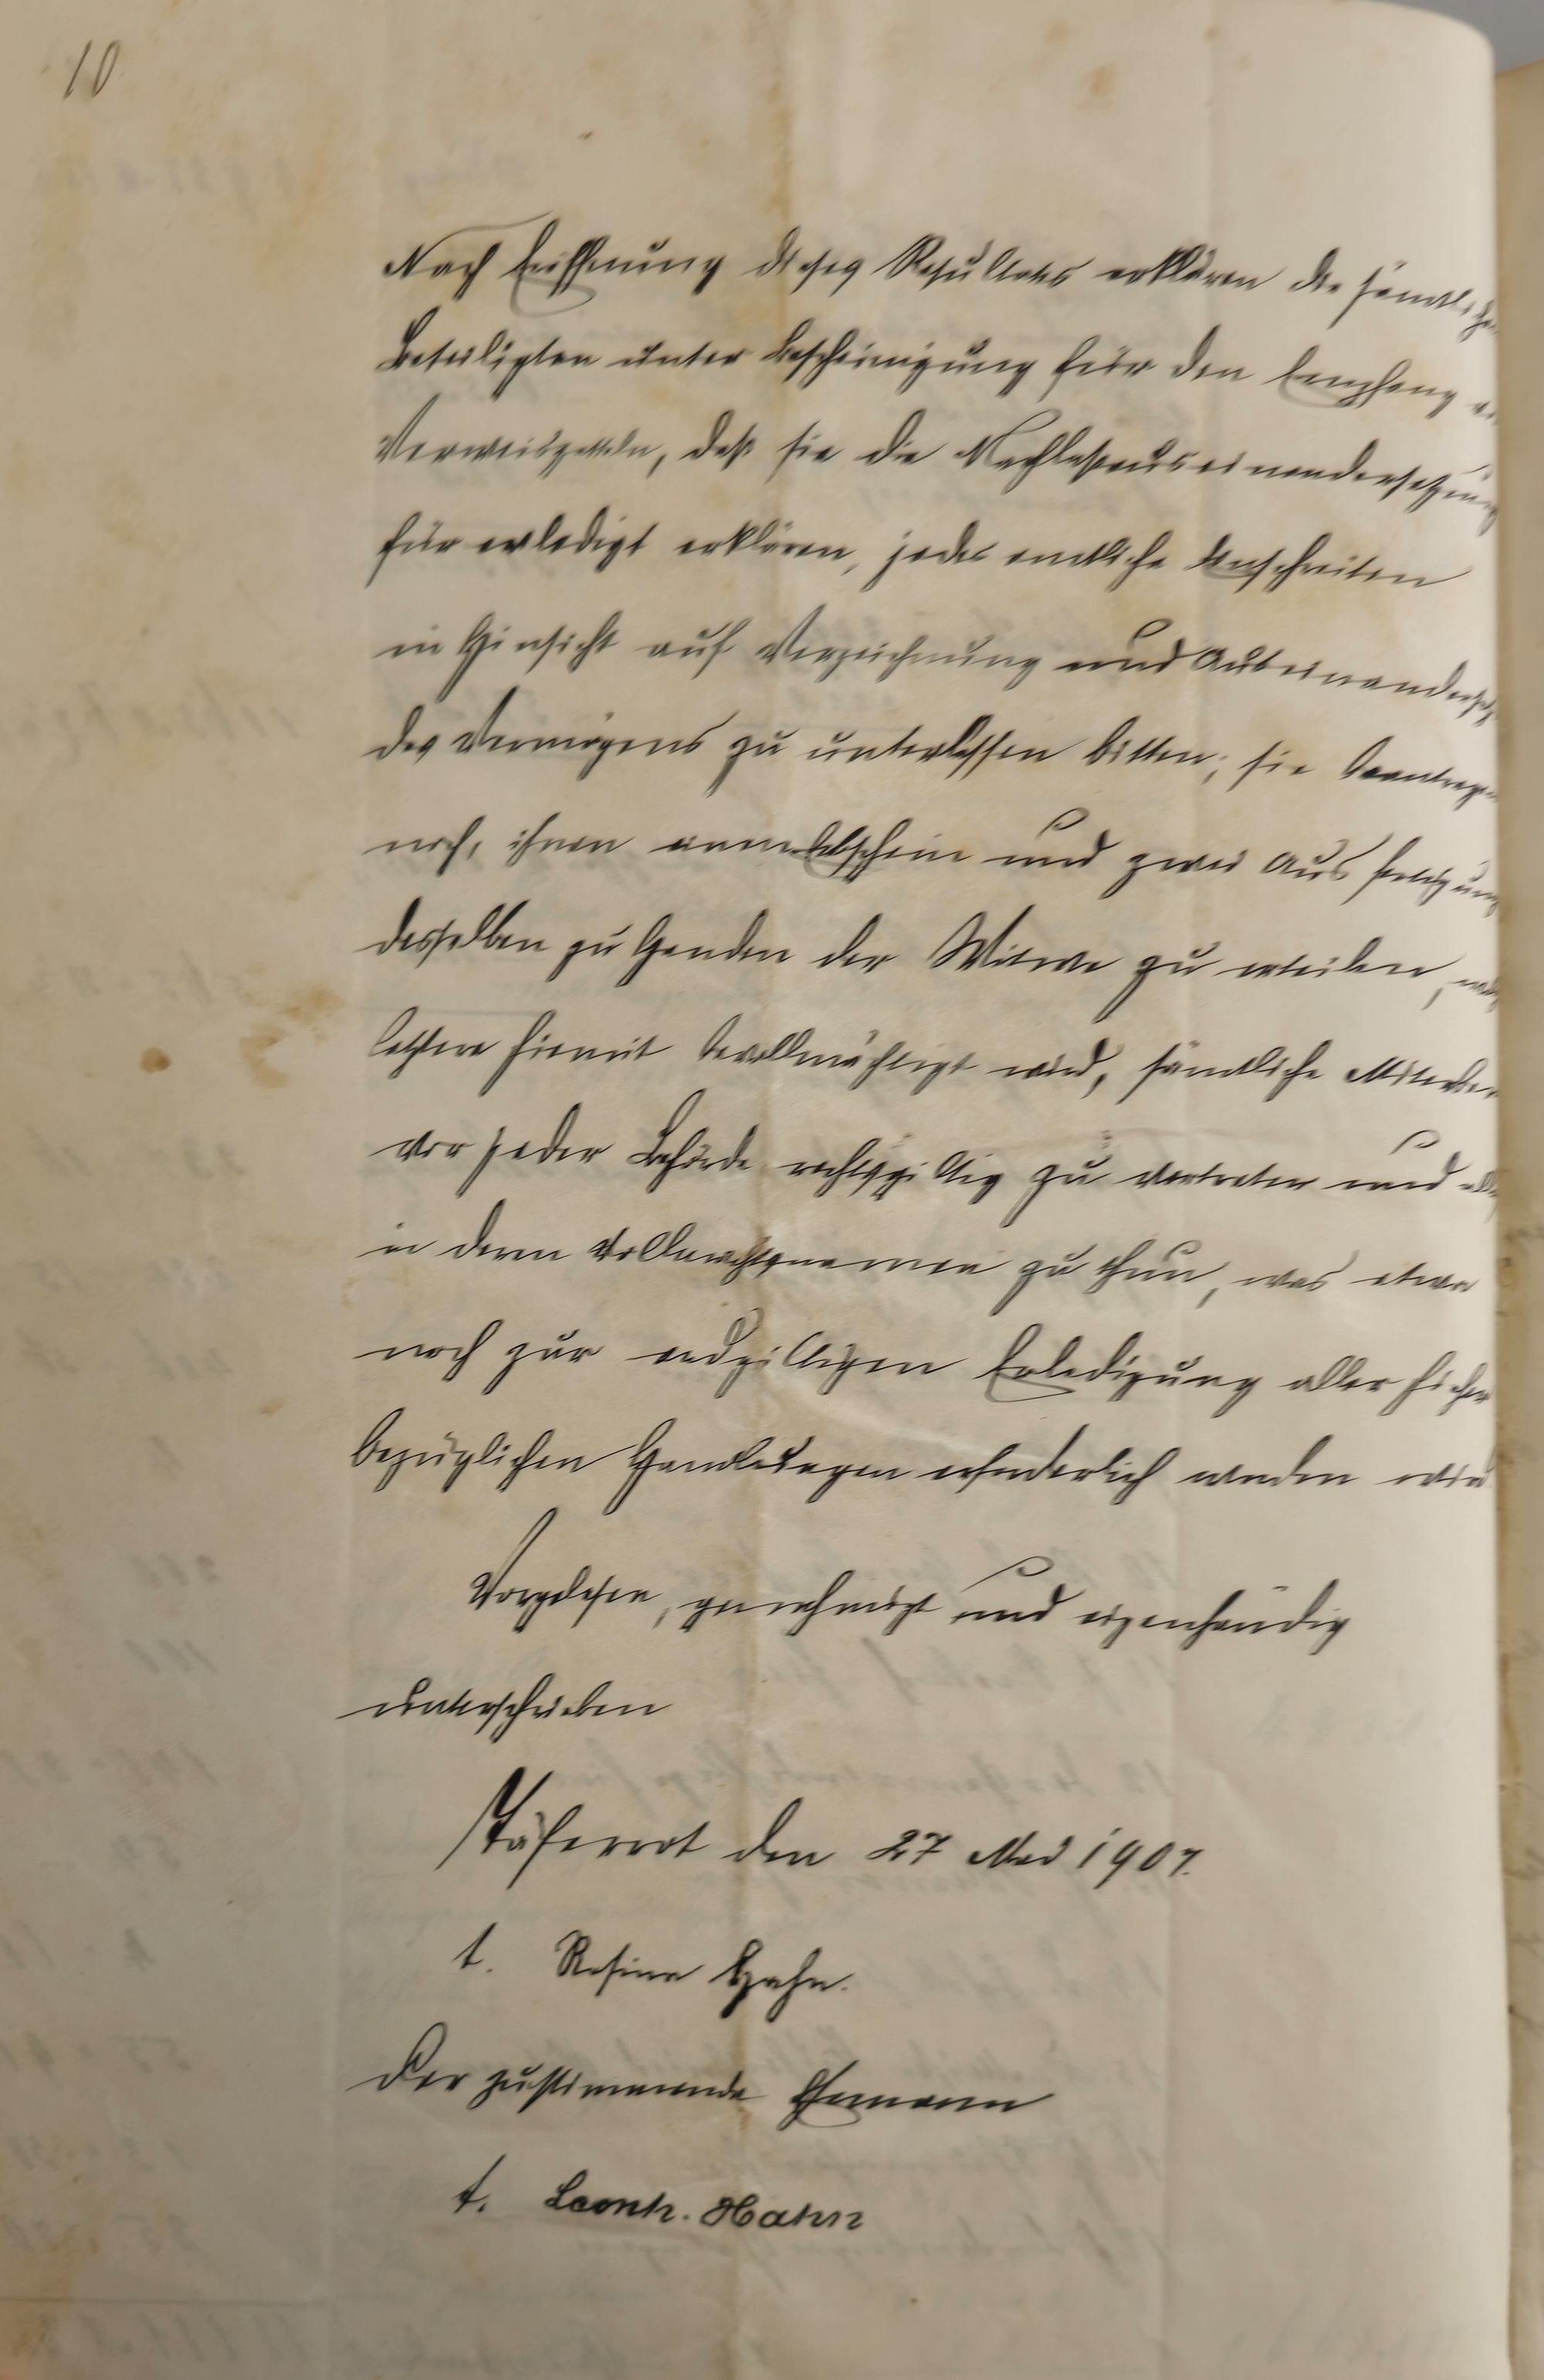 10
Nach Eröffnung dieses Resultates erklären die sämtlichen
Beteiligten unter Bescheinigung für den Empfang
Verweiszetteln, daß sie die Nachlaßauseinandersetzung
für erledigt erklären, jedes amtliche Einschreiten
in Hinsicht auf Verzeichnung und Auseinandersetz
des Vermögens zu unterlassen bitten; sie beantragen
noch, ihnen einen Erbschein und zwei Ausfertigung
desselben zu Handen der Witwe zu erteilen,
letztere hiemit bevollmächtigt wird, sämtliche Miterben
vor jeder Behörde rechtsgiltig zu vertreten und alles
in deren Vollmachtsnamen zu thun, was etwa
noch zur endgiltigen Erledigung aller hieher
bezüglichen Handlungen erforderlich werden wird
Vorgelesen, genehmigt und eigenhändig
unterschrieben
Täferrot den 27 Mai 1907.
t. Rosine Hahn.
Der zustimmende Ehemann
t. Leonh. Hahn